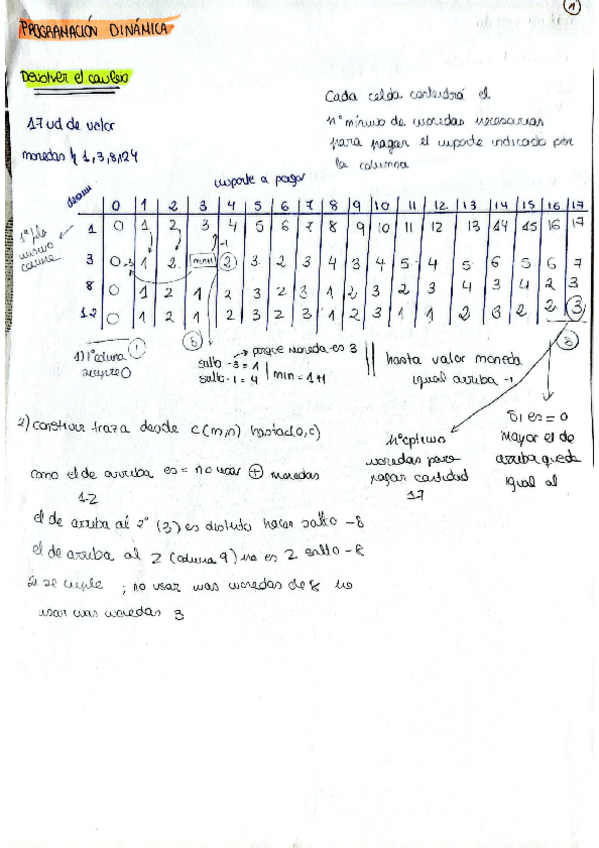 1
PROGRAMACIÓN DINÁMICA
Devolver el cambio
Cada celda contendrá el
nº mínimo de monedas necesarias
para pagar el importe indicado por
la columna
17 ud de valor
monedas 1, 3, 8, 12
importe a pagar
0 1 2 3 4 5 6 7 8 9 10 11 12 13 14 15 16 17
1 0 1 2 3 4 5 6 7 8 9 10 11 12 13 14 15 16 17
1ª fila
-1
3 0 1 2 2 3 2 3 4 3 4 5 4 5 6 5 6 7
-3
8 0 1 2 1 2 3 2 3 1 2 3 2 3 4 3 4 2 3
12 0 1 2 1 2 3 2 3 1 2 3 1 1 2 3 2 2 3
1) 1ª columna
siempre 0
salto -3 = 1 porque moneda es 3
salto -1 = 4 min = 1+1
hasta valor moneda
igual arriba -1
8
2) construir traza desde c(m,n) hasta c(0,c)
nº óptimo
monedas para
pagar cantidad
17
Si es = 0
Mayor el de
arriba queda
igual al
como el de arriba es = no usar + monedas
12
el de arriba al 2º (3) es distinto hacer salto -8
el de arriba al 2 (columna 9) no es 2 salto -8
Si se cumple ; no usar mas monedas de 8 no
usar mas monedas 3